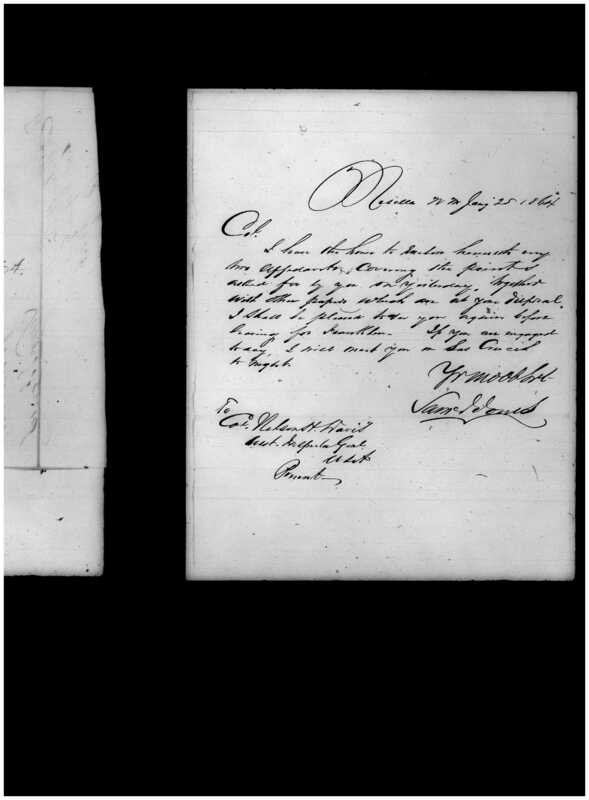 Mesilla N M Jany 25 1864
Col.
I have the honor to enclose herewith my
two affidavits, covering the points
asked for by you on yesterday, together
with other papers which are at your disposal.
I shall be pleased to see you again before
leaving for Franklin. If you are engaged
today, I will meet you in Las Cruces
to night.
Yr mo obt svt
Saml J Jones
To
Col. Nelson H. Davis
Asst. Inspector Genl
U S A
Present